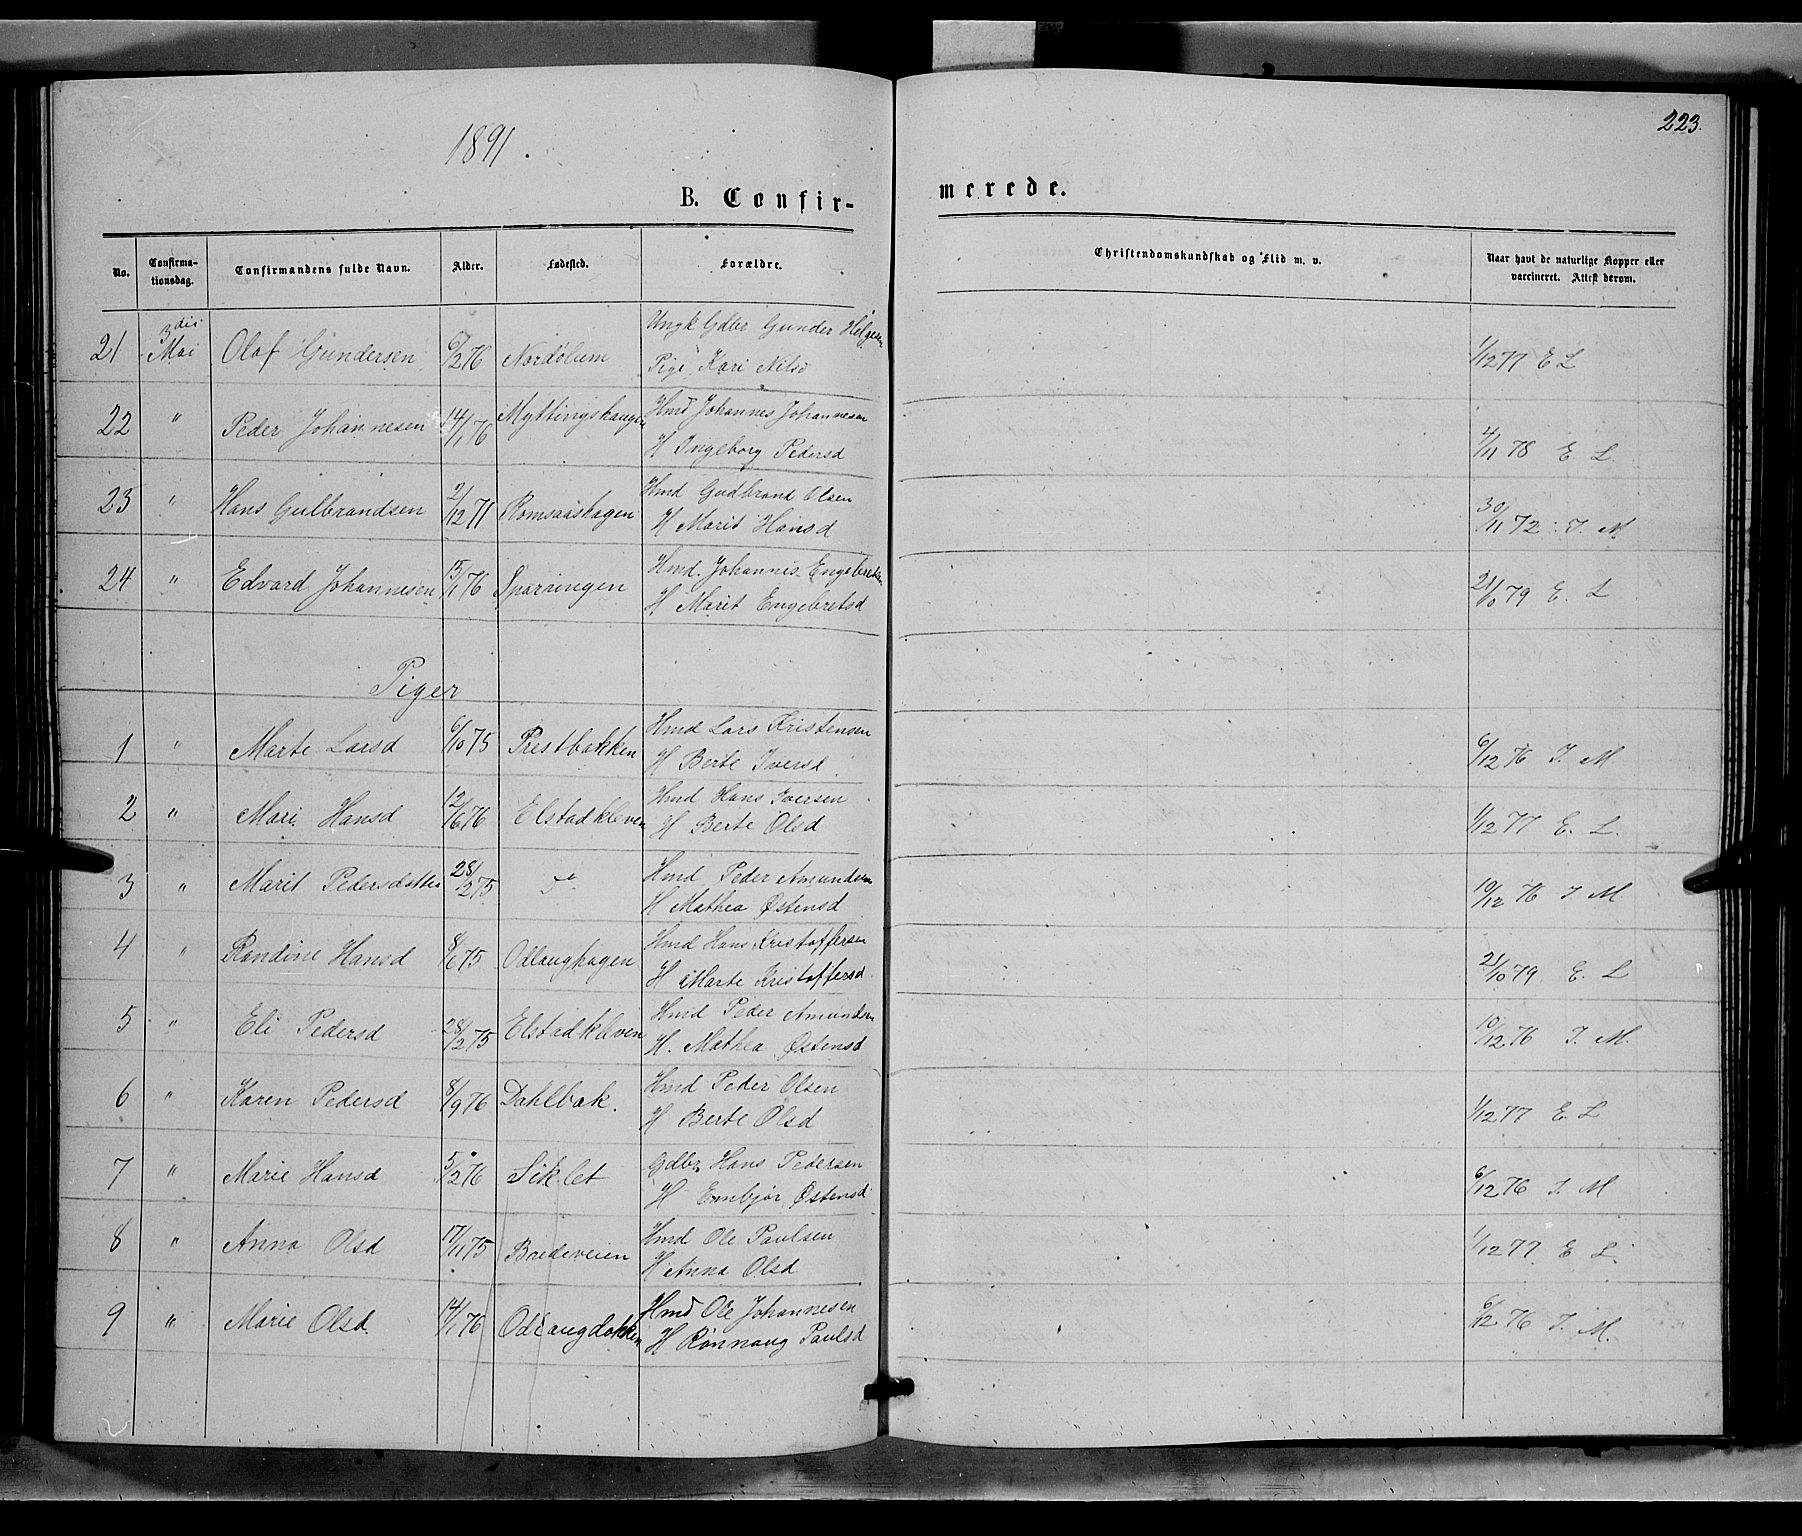 223.
1891.
B. Confir-
merede.
No. Confirma-tionsdag. Confirmandens fulde Navn. Alder. Fødested. Forældre. Christendomskundskab og Flid m. v. Naar havt de naturlige Kopper eller vaccineret. Attest derom.
21 3die Mai Olaf Gundersen 6/2 76 Nordolum Ungk Gdbr Gunder Helgesen 1/12 77 E L
Pige Kari Nilsd
22 " Peder Johannesen 14/1 76 Myttingshaugen Hmd Johannes Johannesen 4/11 78 E. L.
H Ingeborg Pedersd
23 " Hans Gulbrandsen 2/12 71 Romsaashagen Hmd Gudbrand Olsen 30/11 72 I. M
H Marit Hansd
24 " Edvard Johannesen 15/1 76 Sparringen Hmd. Johannes Engebretsen 21/10 79 E. L
H Marit Engebretsd
Piger
1 " Marte Larsd 6/10 75 Prestbakken Hmd Lars Kristensen 6/12 76 I. M
H Berte Iversd
2 " Mari Hansd 12/6 76 Elstadkleven Hmd Hans Iversen 1/12 77 E. L.
H Berte Olsd
3 " Marit Pedersdatter 28/2 75 do Hmd Peder Amundsen 10/12 76 I M
H Mathea Østensd
4 " Randine Hansd 8/6 75 Odlaughagen Hmd Hans Kristoffersen 21/10 79 E. L
H Marte Kristoffersd
5 " Eli Pedersd 28/2 75 Elstadkleven Hmd Peder Amundsen 10/12 76 I. M.
H. Mathea Østensd
6 " Karen Pedersd 8/9 76 Dahlbak. Hmd Peder Olsen 1/12 77 E L
H Berte Olsd
7 " Marie Hansd 5/2 76 Siklet Gdbr. Hans Pedersen 6/12 76 I. M
H Embjør Østensd
8 " Anna Olsd 17/11 75 Bredeveien Hmd Ole Paulsen 1/12 77 E L.
H Anna Olsd
9 " Marie Olsd. 14/1 76 Odlaugdokken Hmd Ole Johannesen 6/12 76 I. M.
H Rønnaug Paulsd